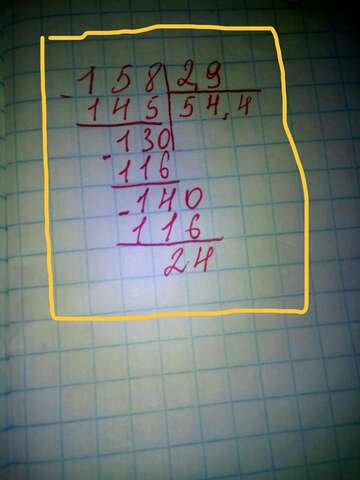 158 2,9
- 145 54,4
130
- 116
- 140
116
24